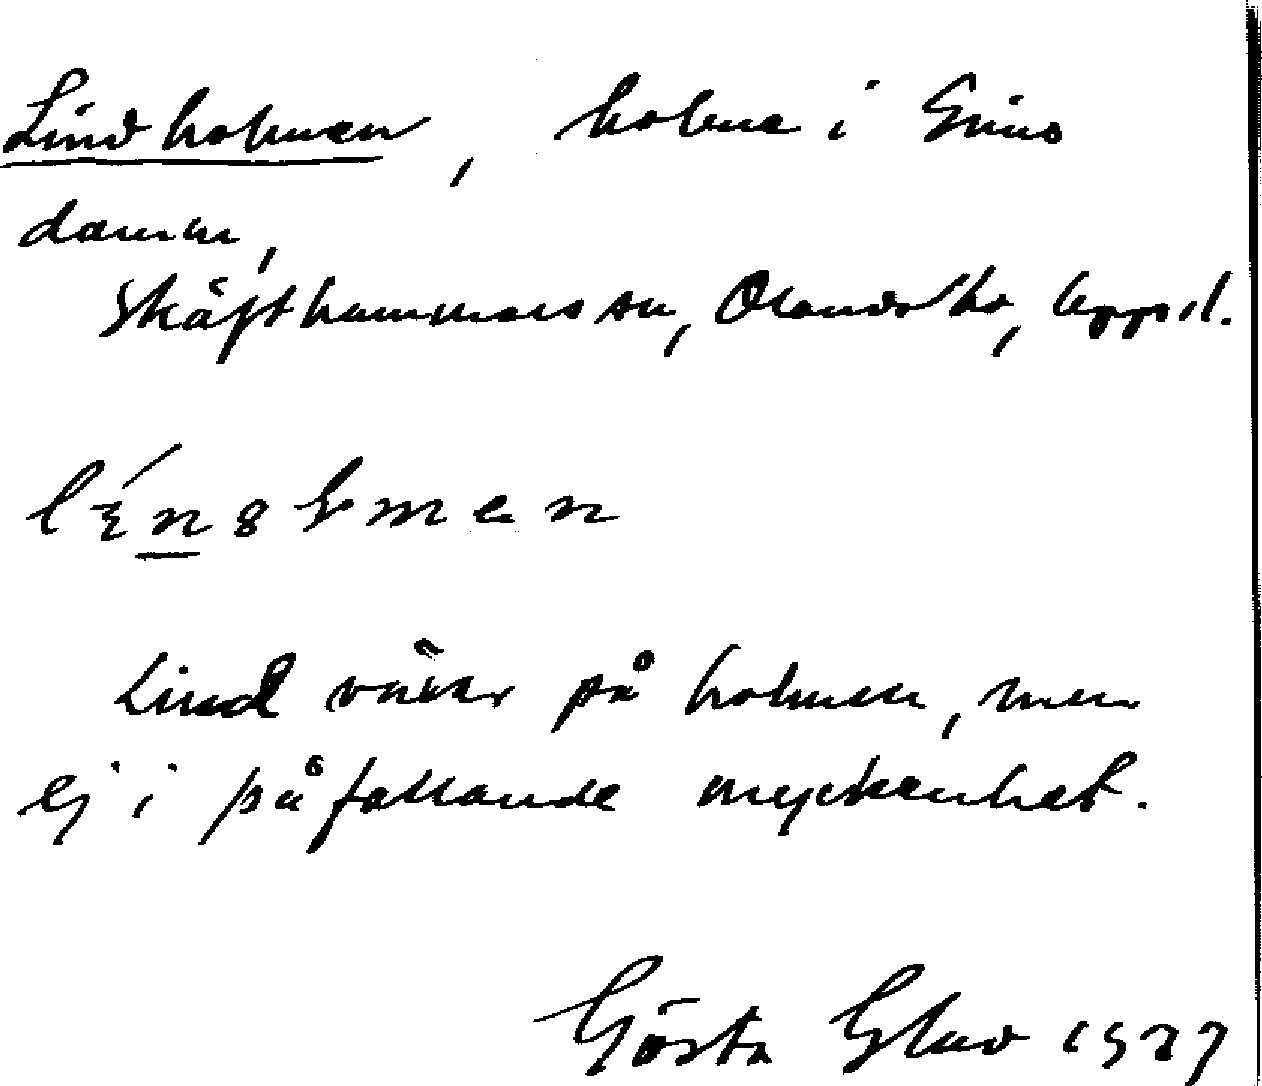 Lindholmen, holme i Gimo
damm,
Skäfthammars sn, Olands hd, Uppsl.
Lind växer på holmen, men
ej i påfallande myckenhet.
Gösta Glad 1927